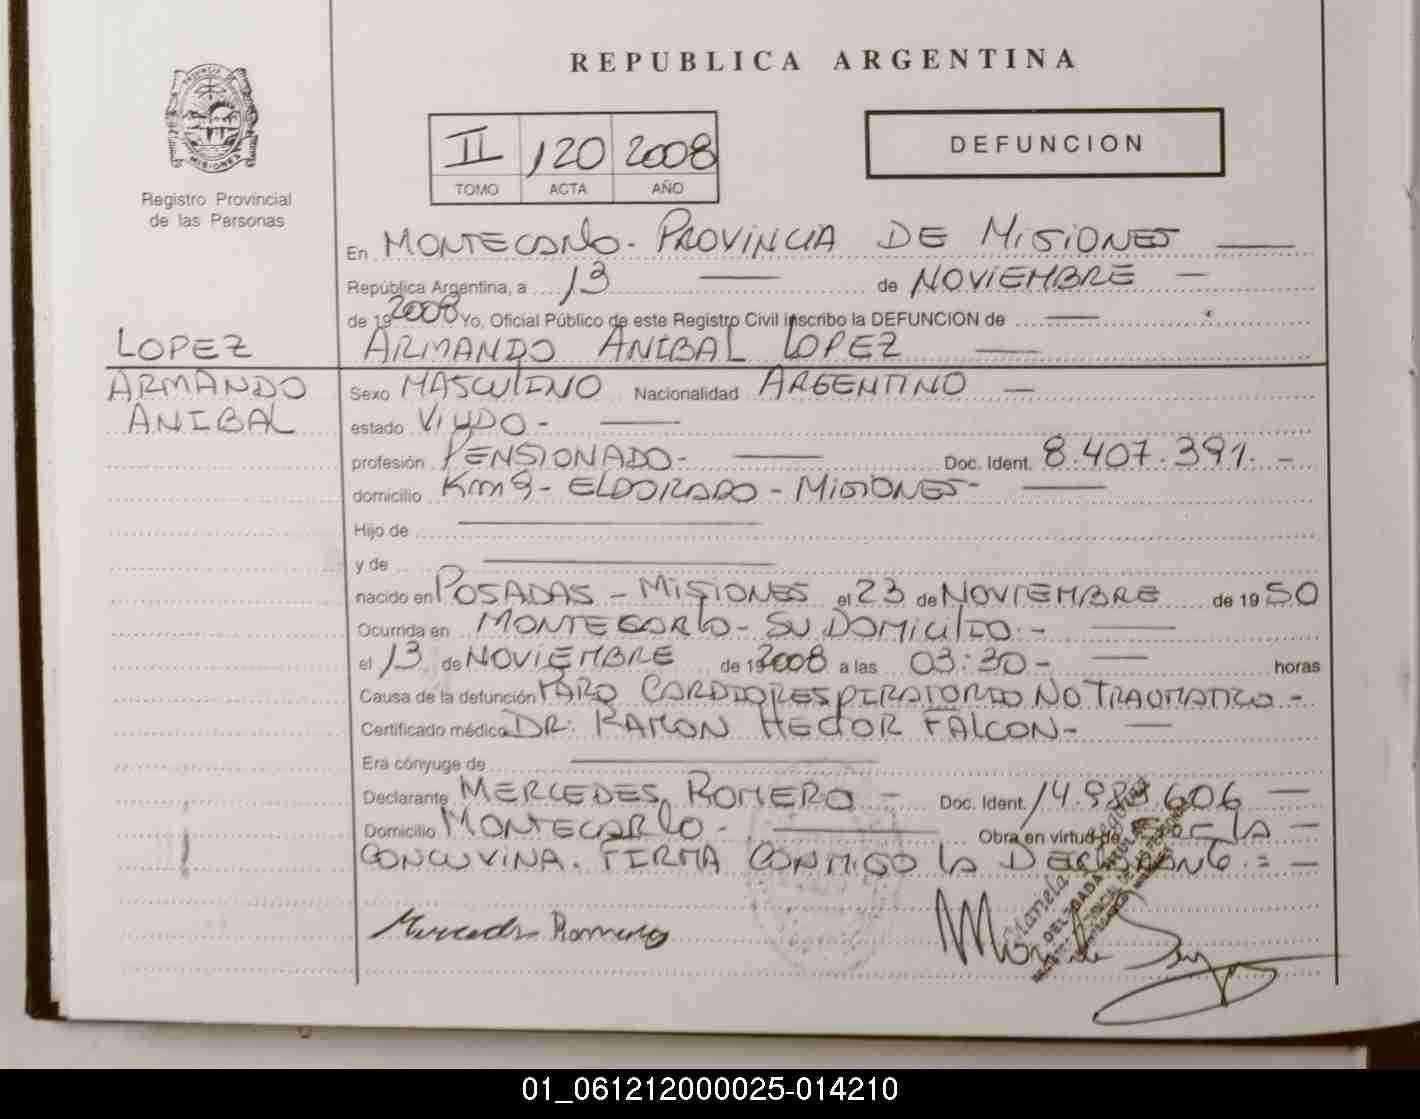 REPUBLICA ARGENTINA
PROVINCIA DE
MISIONES
Registro Provincial
de las Personas
II 120 2008
TOMO ACTA AÑO
DEFUNCION
En MONTECARLO- PROVINCIA DE MISIONES
República Argentina, a 13 de NOVIEMBRE
de 19 2008 Yo, Oficial Público de este Registro Civil inscribo la DEFUNCION de
LOPEZ ARMANDO ANIBAL LOPEZ
ARMANDO Sexo MASCULINO Nacionalidad ARGENTINO
ANIBAL estado VIUDO-
profesión PENSIONADO- Doc. Ident. 8.407.391.-
domicilio Km9- ELDORADO - MISIONES-
Hijo de
y de
nacido en POSADAS - MISIONES el 23 de NOVIEMBRE de 19 50
Ocurrida en MONTECARLO- SU DOMICILIO.-
el 13 de NOVIEMBRE de 19 2008 a las 03:30- horas
Causa de la defunción PARO CARDIORESPIRATORIO NO TRAUMATICO-
Certificado médico DR: RAMON HECTOR FALCON-
Era cónyuge de
Declarante MERCEDES ROMERO - Doc. Ident. 606
Domicilio MONTECARLO- Obra en virtud de LA -
CONCUVINA. FIRMA CONMIGO LA DECLARANTE.=
Mercedes Romero
Mariela
DELEGADA TITULAR
01_061212000025-014210